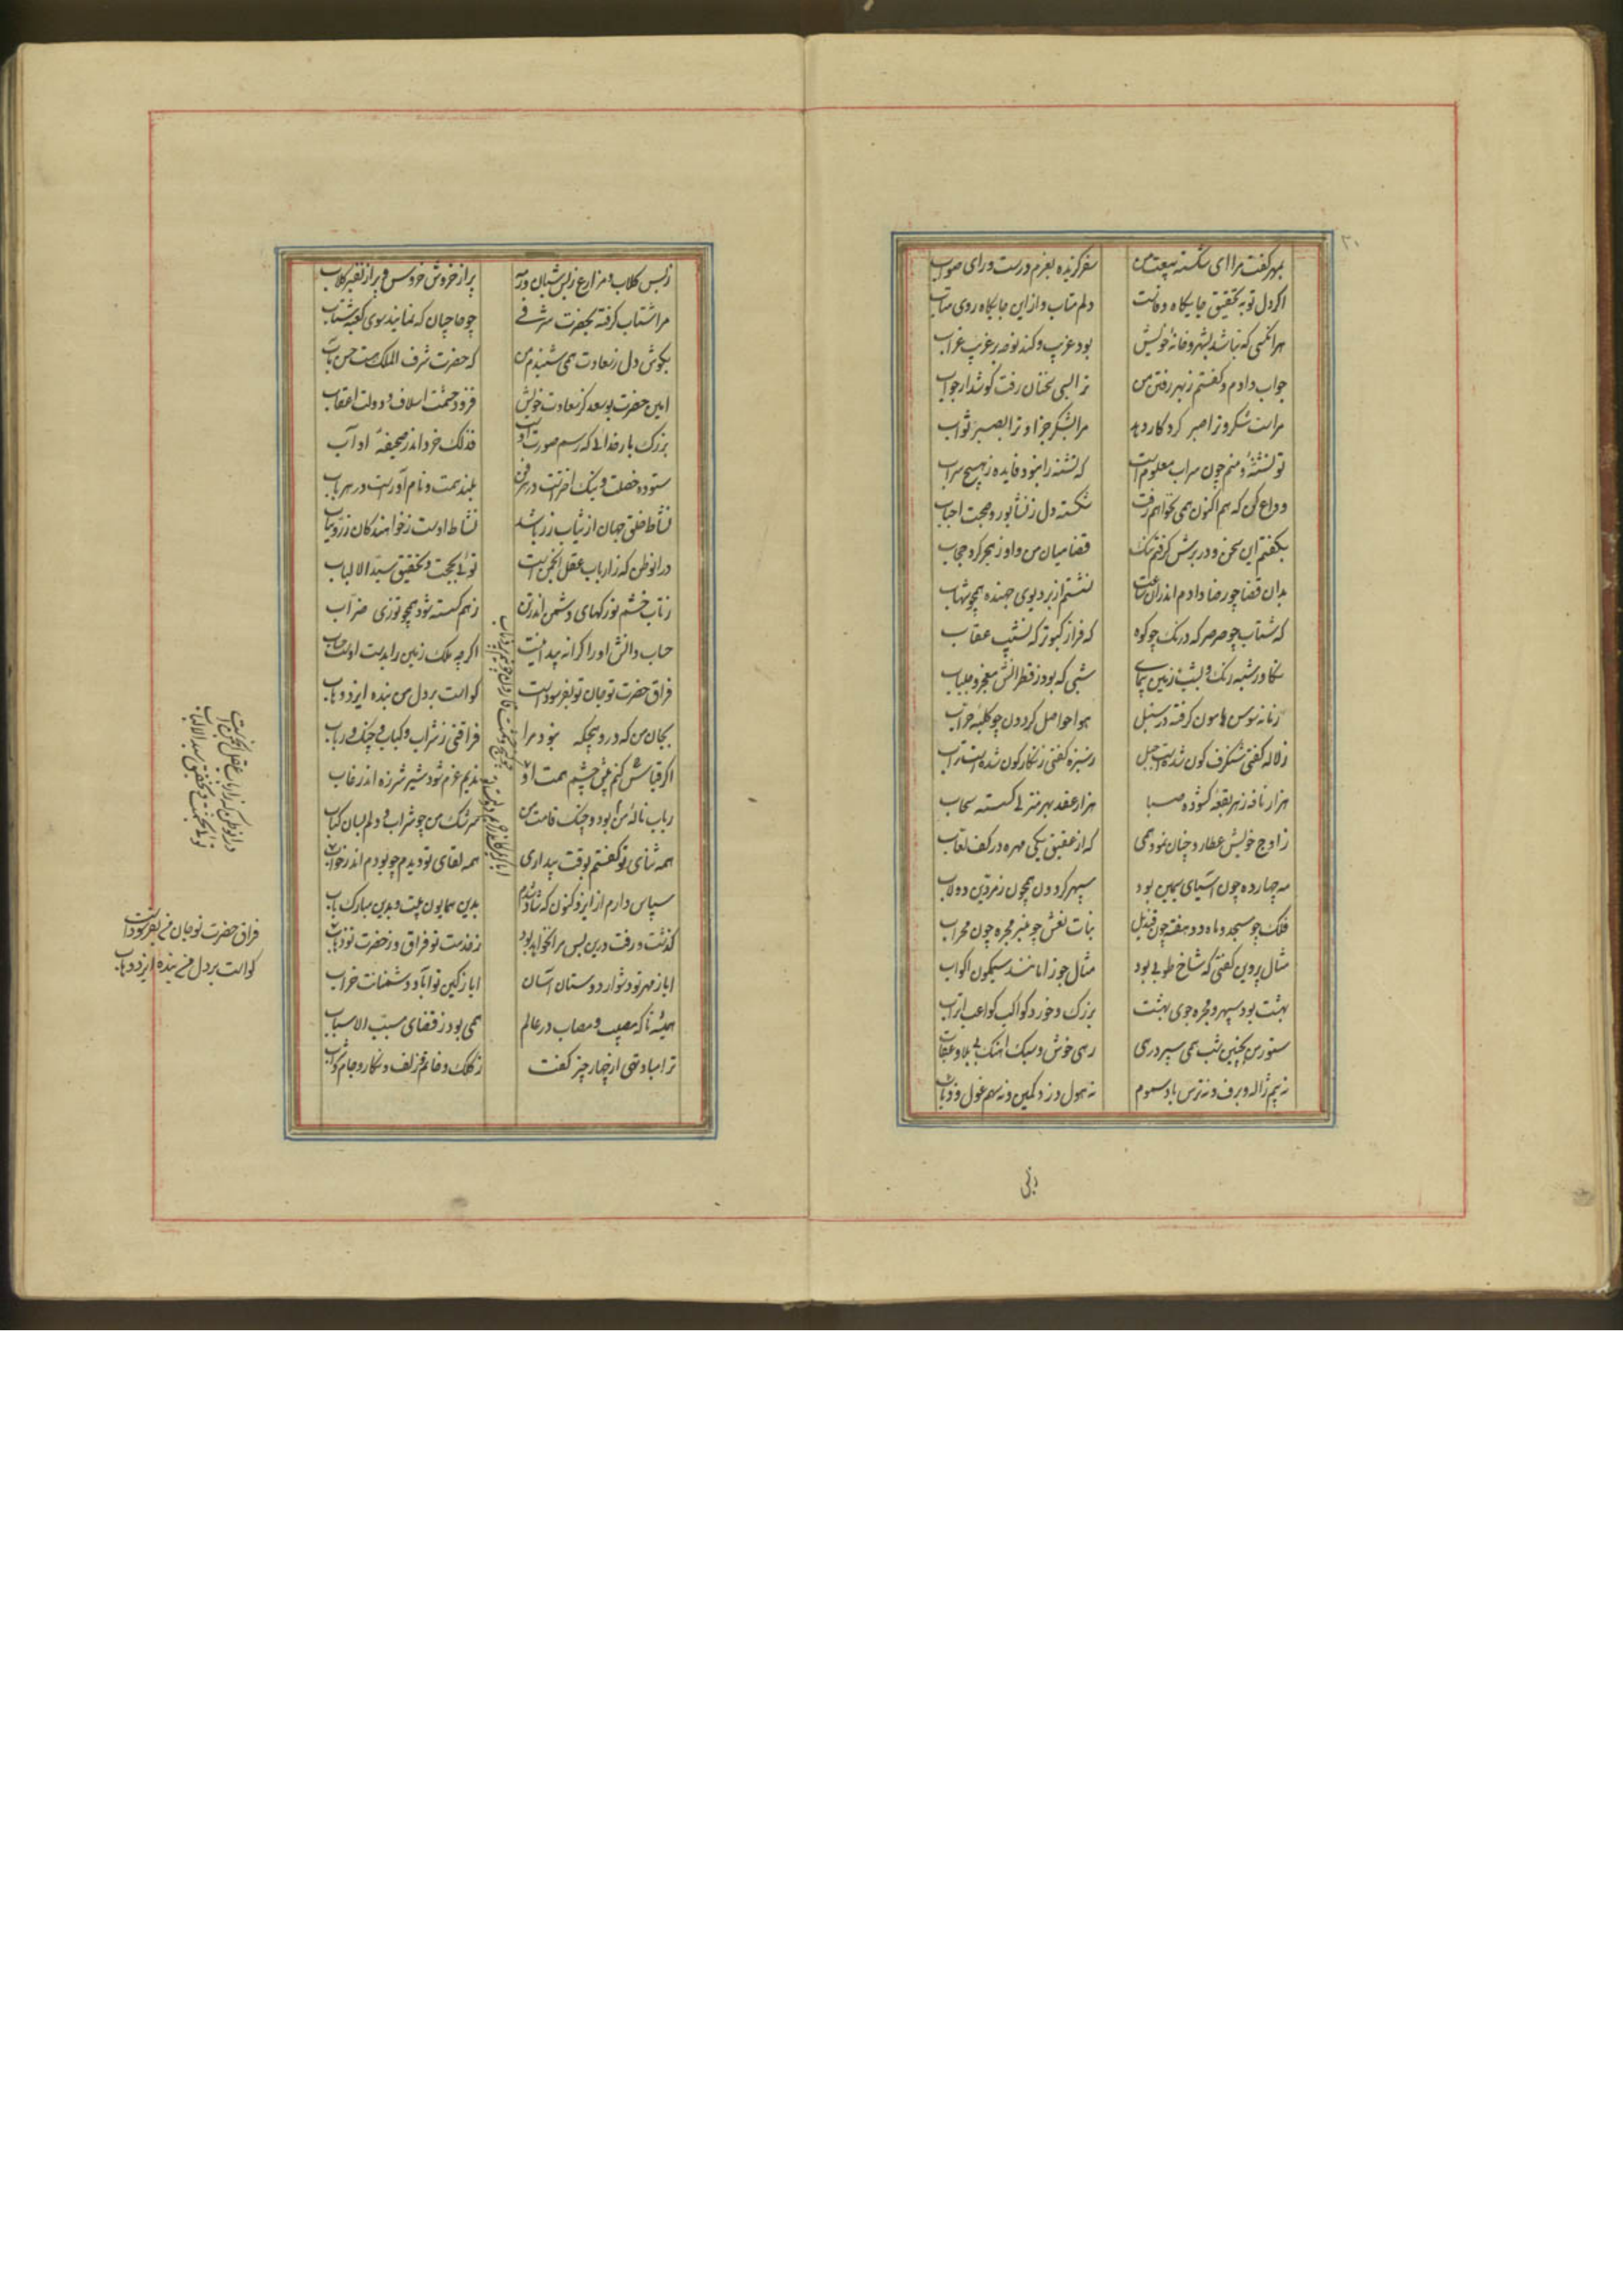 ۲۰
بمهر گفت مرا ای شکسته بیعت من سفر گزیده بعزم درست و رای صواب
اگر دل تو بتحقیق جایگاه وفاست دلم متاب و از این جایگاه روی متاب
هرانکسی که نباشد بشهر و خانه خویش بود غریب و کند نوحه بر غریب غراب
جواب دادم و گفتم ز بهر رفتن من ترا بسی سخنان رفت گوشدار جواب
مراست شکر و ترا صبر کردگار دهد مرا بشکر جزا و ترا بصبر ثواب
تو تشنهٔ و منم چون سراب معلوم است که تشنه را نبود فایده ز هیچ سراب
وداع کن که هم اکنون همی بخواهم رفت شکسته دل ز نشابور و صحبت احباب
بگفتم این سخن و در برش گرفتم تنگ قضا میان من و او ز هجر کرد حجاب
بدان قضا چو رضا دادم اندران ساعت نشستم از بر دیوی جهنده همچو شهاب
که شتاب چو صرصر که درنک چو کوه که فراز کبوتر که نشیب عقاب
تکاور شبه رنک و بشب زمین پیمای شبی که بود ز قطرانش معجر و جلباب
زمانه سوس هامون گرفته در سنبل هوا حواصل گردون چو کلبه خراب
ز لاله گفتی شنگرف گون شده است جبل ز سبزه گفتی زنگارگون شده است تراب
هزار نافه ز هر بقعه گشوده صبا هزار عقد بهر منزلی گسسته سحاب
ز اوج خویش عطارد چنان نمود همی که از عقیق یکی مهره در کف لعاب
مه چهارده چون آسیای سیمین بود سپهر گردون همچون زمردین دولاب
فلک چو مسجد و ماه دو هفته چون قندیل بنات نعش چو منبر مجره چون محراب
مثال پروین گفتی که شاخ طوبی بود مثال جوزا مانند سیمگون اکواب
بهشت بود سپهر و مجره جوی بهشت بزرک و خورد کواکب کواعب اتراب
ستور من بچنین شب همی سپرد رهی رهی خوش و سبک اهنک بی بلا و عقاب
نه بیم ژاله و برف و نه ترس باد سموم نه هول دزد کمین و نه سهم غول و ذئاب
ز بس
ز بس کلاب و مزارع ز بس شبان و رمه پر از خروش خروس و پر از نفیر کلاب
مرا شتاب گرفته بحضرت شرفی چو حاجیان که نمایند سوی کعبه شتاب
بگوش دل ز سعادت همی شنیدم من که حضرت شرف الملک هست حسن مآب
امین حضرت بوسعد کز سعادت خویش فزود حشمت اسلاف و دولت اعقاب
بزرک بارخدائی که رسم صورت اوست فذلک خرد اندر صحیفهٔ اداب
ستوده خصلت و نیک اخترست در هر فن بلند همت و نام آورست در هر باب
نشاط خلق جهان از ثیاب زر باشد نشاط اوست ز خواهندگان زر و ثیاب
در انوطن که ز ارباب عقل انجمن است توئی بحجت و تحقیق سید الالباب
ز تاب خشم تو رگهای دشمن اندر تن ز هم گسسته شود همچو توزی مهتاب
حساب دانش او را کرانه پیدا نیست اگرچه ملک زمین را بدست اوست حساب
فراق حضرت تو جان تو بفرسودست گواست بر دل من بنده ایزد وهاب
بجان من که در و هیچگه نبود مرا فراقتی ز شراب و کباب و چنگ و رباب
اگر قیاس کنم پیش چشم همت او ندیم غرم شود شیر شرزه اندر غاب
رباب نالهٔ من بود و چنگ قامت من سرشک من چو شراب و دلم بسان کباب
همه ثنای تو گفتم بوقت بیداری همه لقای تو دیدم چو بودم اندر خواب
سپاس دارم از ایزد کنون که شاد شدم بدین همایون بیت و بدین مبارک باب
گذشت و رفت درین پس مرا نخواهد بود ز خدمت تو فراق و ز حضرت تو ذهاب
ایا ز مهر تو دشوار دوستان آسان ایا ز کین تو آباد دشمنانت خراب
همیشه تا که مصیب و مصاب در عالم همی بود ز قضای مسبب الاسباب
ترا مباد تهی از چهار چیز کفت ز کلک و خاتم و زلف و نگار و جام شراب
در انوطن که ز ارباب عقل انجمن است
توئی بحجت و تحقیق سید الالباب
فراق حضرت تو جان من بفرسودست
گواست بر دل من بنده ایزد وهاب